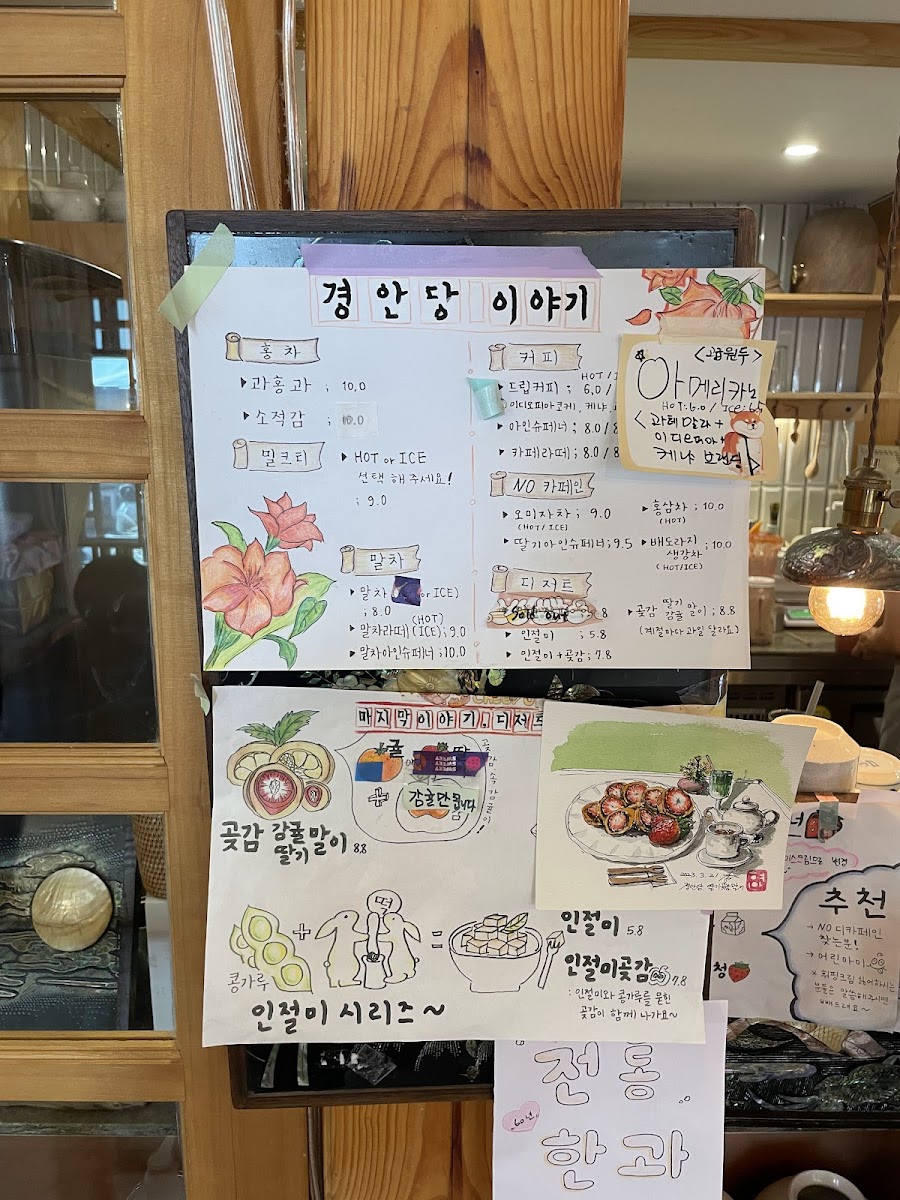 경안당 이야기
홍차
▸과홍과 ; 10.0
▸소적감 ; 10.0
밀크티
▸HOT or ICE
선택 해주세요!
; 9.0
말차
▸말차 or ICE)
; 8.0
▸말차라떼 (HOT) (ICE) ; 9.0
▸말차아인슈페너 ; 10.0
커피
HOT / I
▸드립커피 ; 6.0 /
이디오피아코케, 케냐,
▸아인슈페너 ; 8.0 / 8
▸카페라떼 ; 8.0 / 8
NO 카페인
▸오미자차 ; 9.0
(HOT/ICE)
▸딸기아인슈페너 ; 9.5
▸홍삼차 ; 10.0
(HOT)
▸배도라지
생강차 ; 10.0
(HOT/ICE)
디저트
Sold out 8
▸인절미 ; 5.8
▸인절미+곶감 ; 7.8
▸곶감 딸기 감귤 말이 ; 8.8
(계절마다 과일 달라요)
<공원두>
아메리카노
HOT:6.0 / ICE:6.5
<과테말라+
이디오피아+
케냐 브랜딩>
마지막이야기. 디저트
귤
딸
곶감 속 감귤이!
감귤만 됩니다
곶감 감귤 딸기 말이 8.8
떡
콩가루
인절미 시리즈~
인절미 5.8
인절미곶감 7.8
: 인절미와 콩가루를 묻힌
곶감이 함께 나가요~
2023.3.21.
추천
→ NO 디카페인
찾는분!
→ 어린아이
* 휘핑크림 싫어하시는
분들은 말씀해주시면
빼드려요~
청
60년
전통
한과